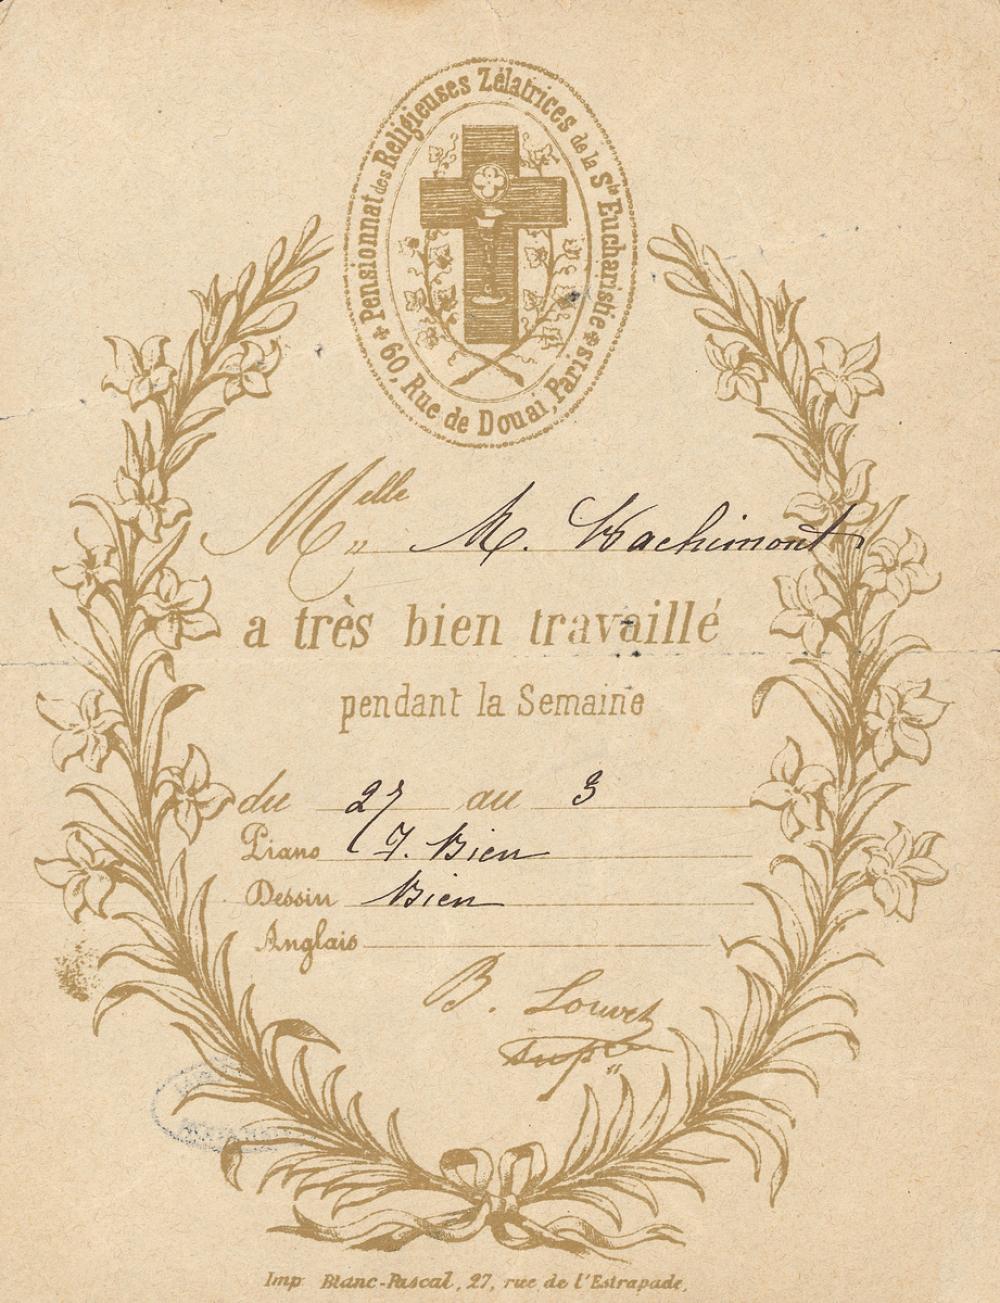 Pensionnat des Religieuses Zélatrices de la Ste Eucharistie
60, Rue de Douai, Paris
Melle M. Wachimont
a très bien travaillé
pendant la Semaine
du 27 au 3
Piano T. Bien
Dessin Bien
Anglais
B. Louvet
supre
Imp. Blanc-Pascal, 27, rue de l'Estrapade,